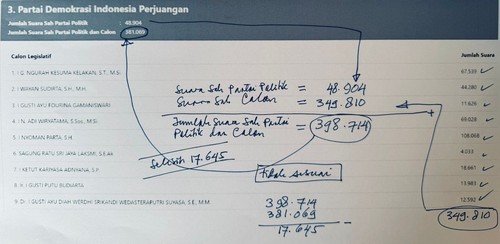 3. Partai Demokrasi Indonesia Perjuangan
Jumlah Suara Sah Partai Politik : 48.904
Jumlah Suara Sah Partai Politik dan Calon : 381.069
Calon Legislatif Jumlah Suara
1. I G. NGURAH KESUMA KELAKAN, S.T., M.Si. 67.539
2. I WAYAN SUDIRTA, S.H., M.H. 44.280
3. I GUSTI AYU 11.626
4. I N. ADI WIRYATAMA, S.Sos., M.Si. 69.028
5. I NYOMAN PARTA, S.H. 108.068
6. SAGUNG RATU SRI JAYA LAKSMI, S.E. 4.033
7. I KETUT KARIYASA ADNYANA, S.P. 18.661
8. I GUSTI PUTU BUDIARTA 13.983
9. I GUSTI AYU DIAH WERDHI SRIKANDI WEDASTERAPUTRI SUYASA, S.E., M.M. 12.592
Suara Sah Partai Politik = 48.904
Suara Sah Calon = 349.810
+
Jumlah Suara Sah Partai
Politik dan Calon = 398.714
Selisih 17.645
Tidak sesuai
398.714
381.069
17.645 -
349.810